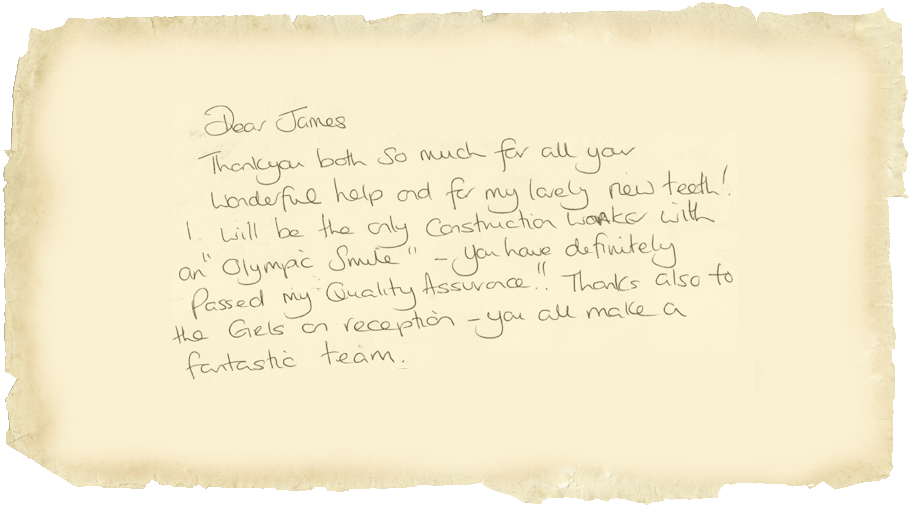 Dear James
Thankyou both so much for all your
wonderful help and for my lovely new teeth!
I will be the only Construction worker with
an "Olympic Smile" - you have definitely
Passed my "Quality Assurance"! Thanks also to
the Girls on reception - you all make a
fantastic team.